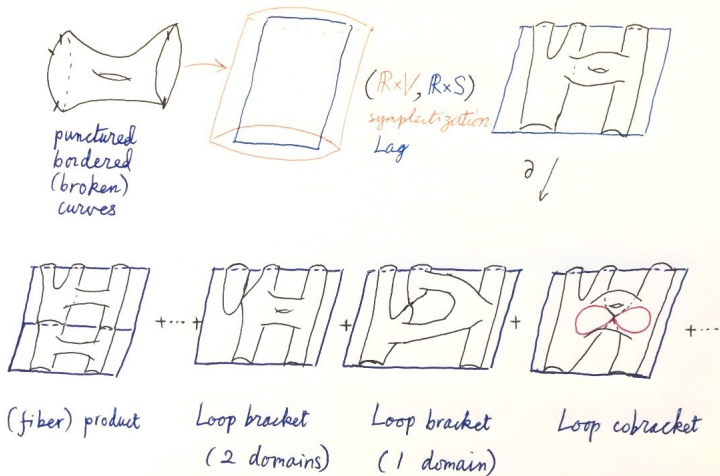 punctured
bordered
(broken)
curves
(ℝ×V, ℝ×S)
symplectization
Lag
∂
+···+
+
+
+···
(fiber) product
Loop bracket
(2 domains)
Loop bracket
(1 domain)
Loop cobracket